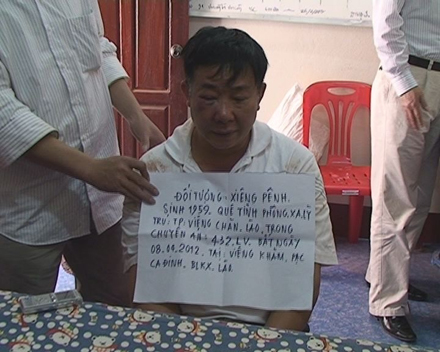 ĐỐI TƯỢNG XIÊNG PÊNH.
SINH 1959. QUÊ TỈNH PHÔNG.XALỲ
TRÚ. TP. VIÊNG CHĂN. LÀO, TRONG
CHUYÊN ÁN: 432.LV. BẮT NGÀY
08.09.2012. TẠI: VIÊNG KHĂM, PẠC
CA ĐINH, BLKX. LÀO.